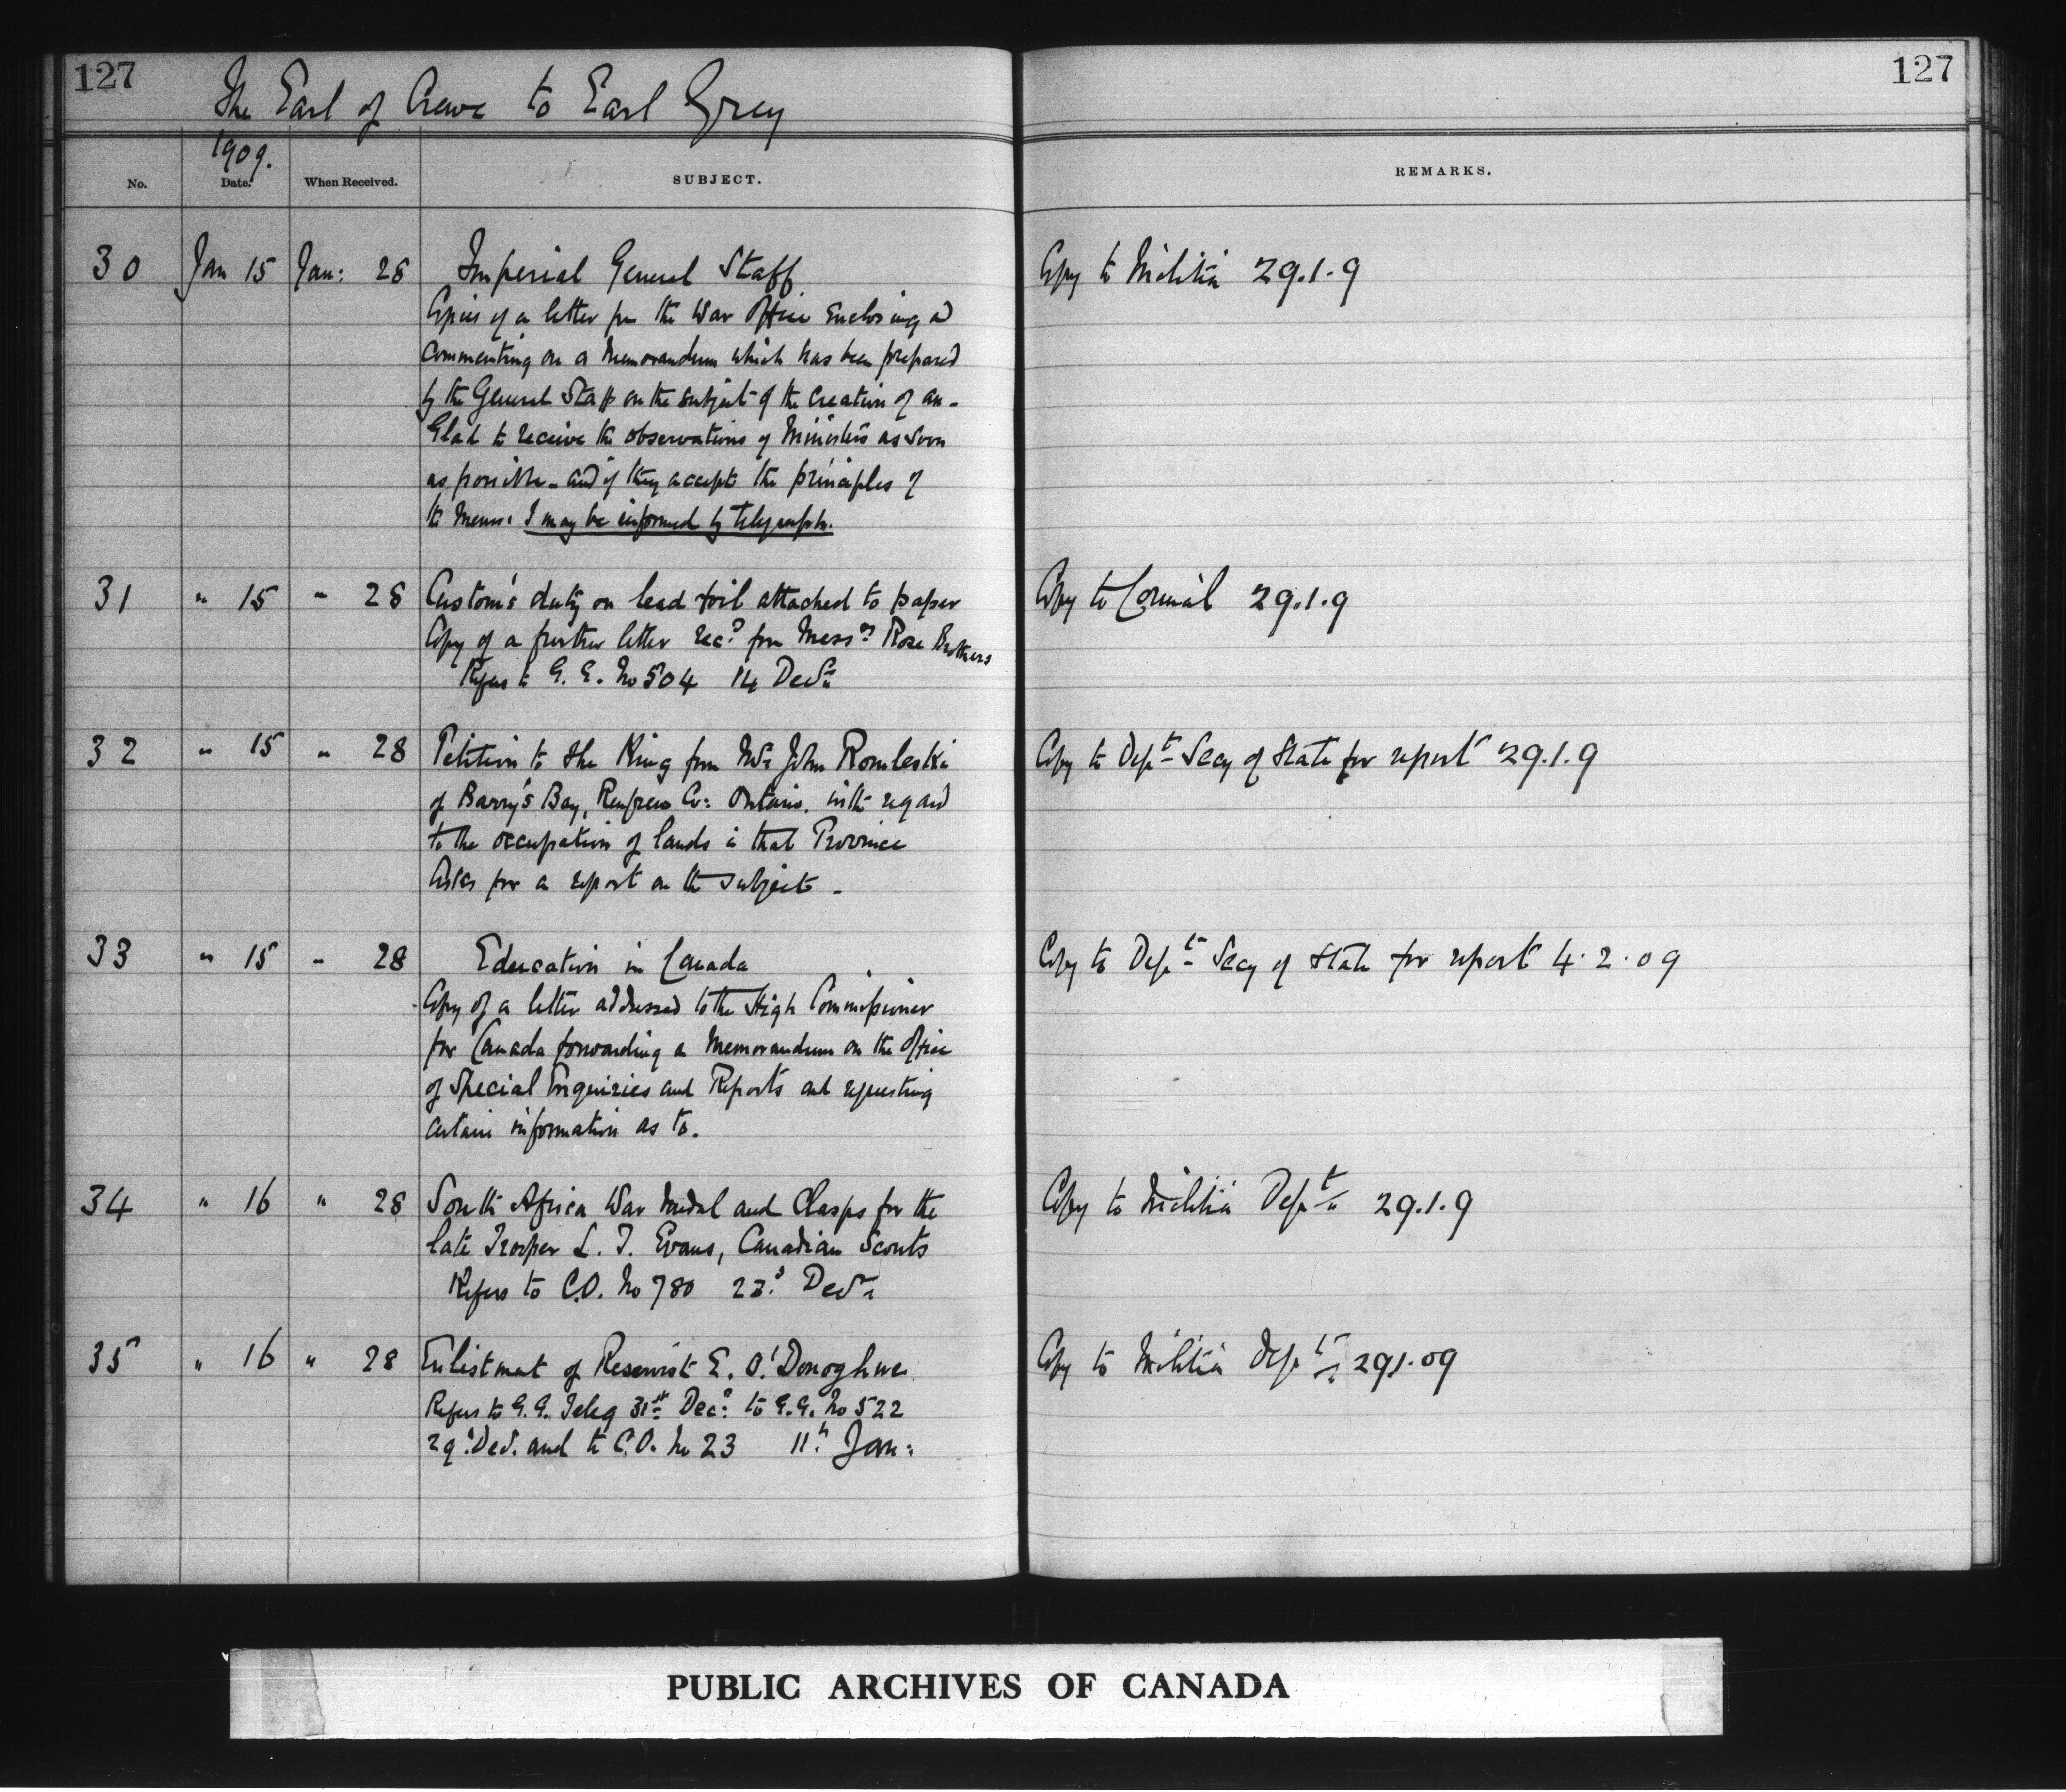 127
The Earl of Crewe to Earl Grey
127
1909.
No. Date. When Received. SUBJECT. REMARKS.
30 Jan 15 Jan: 28 Imperial General Staff Copy to Militia 29.1.9
Copies of a letter fm the War Office enclosing &
commenting on a memorandum which has been prepared
by the General Staff on the subject of the creation of an -
Glad to receive the observations of Ministers as soon
as possible - and if they accept the principles of
the Memo: I may be informed by telegraph.
31 " 15 " 28 Custom's duty on lead foil attached to paper Copy to Council 29.1.9
Copy of a further letter recd fm Messrs Rose Brothers
Refers to G.G. No 504 14 Decr
32 " 15 " 28 Petition to the King from Mr John Romleski Copy to Dept Secy of State for report 29.1.9
of Barry's Bay, Renfrew Co: Ontario, with regard
to the occupation of lands in that Province
Asks for a report on the subject -
33 " 15 " 28 Education in Canada Copy to Dept Secy of State for report 4.2.09
Copy of a letter addressed to the High Commissioner
for Canada forwarding a Memorandum on the Office
of Special Inquiries and Reports and requesting
certain information as to.
34 " 16 " 28 South Africa War Medal and Clasps for the Copy to Militia Dept 29.1.9
late Trooper L. T. Evans, Canadian Scouts
Refers to C.O. No 780 23d Decr
35 " 16 " 28 Enlistment of Reservist E. O'Donoghue Copy to Militia Dept 29.1.09
Refers to G.G. Teleg 31st Dec: to G.G. No 522
29 Dec. and to C.O. No 23 11th Jan:
PUBLIC ARCHIVES OF CANADA